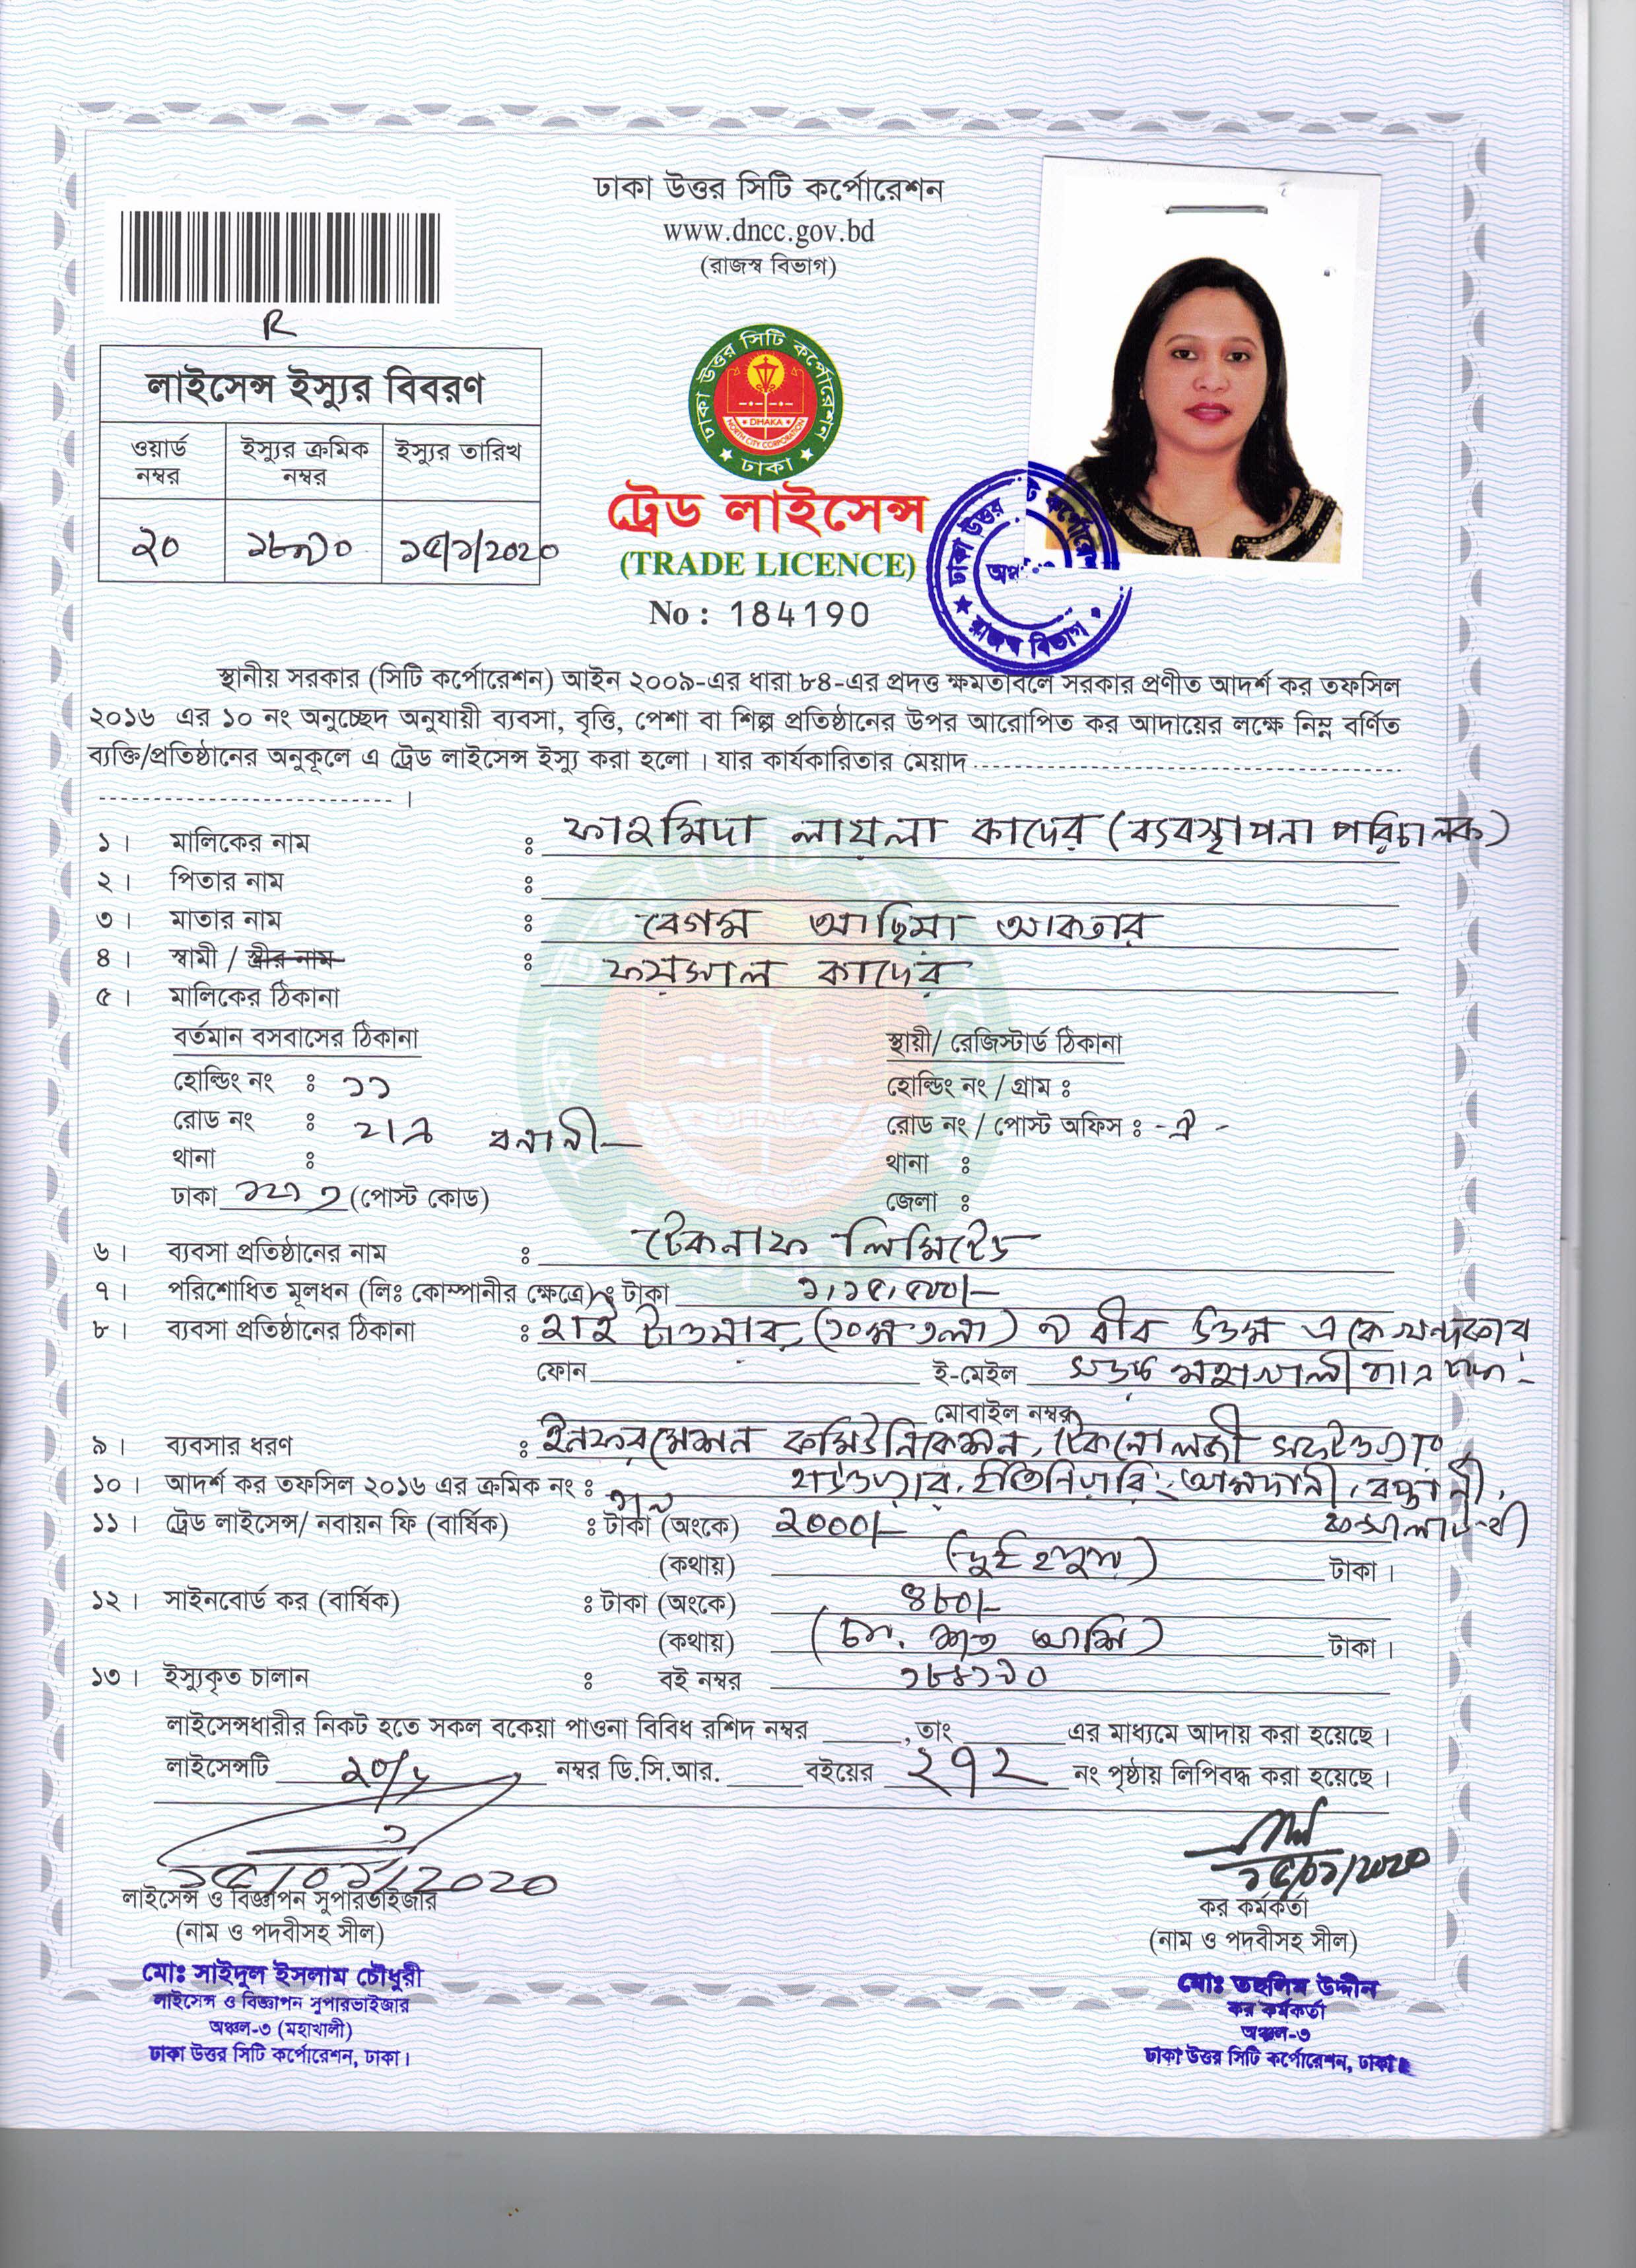 ঢাকা উত্তর সিটি কর্পোরেশন
www.dncc.gov.bd
(রাজস্ব বিভাগ)
R
লাইসেন্স ইস্যুর বিবরণ
ওয়ার্ড নম্বর ইস্যুর ক্রমিক নম্বর ইস্যুর তারিখ
২০ ১৫/১/২০২০
ঢাকা উত্তর সিটি কর্পোরেশন
DHAKA
NORTH CITY CORPORATION
ঢাকা
ট্রেড লাইসেন্স
(TRADE LICENCE)
No : 184190
ঢাকা উত্তর সিটি কর্পোরেশন
রাজস্ব বিভাগ
স্থানীয় সরকার (সিটি কর্পোরেশন) আইন ২০০৯-এর ধারা ৮৪-এর প্রদত্ত ক্ষমতাবলে সরকার প্রণীত আদর্শ কর তফসিল
২০১৬ এর ১০ নং অনুচ্ছেদ অনুযায়ী ব্যবসা, বৃত্তি, পেশা বা শিল্প প্রতিষ্ঠানের উপর আরোপিত কর আদায়ের লক্ষে নিম্ন বর্ণিত
ব্যক্তি/প্রতিষ্ঠানের অনুকূলে এ ট্রেড লাইসেন্স ইস্যু করা হলো । যার কার্যকারিতার মেয়াদ
।
১। মালিকের নাম : ফাহমিদা লায়লা কাদের (ব্যবস্থাপনা পরিচালক)
২। পিতার নাম :
৩। মাতার নাম : বেগম আছিমা আকতার
৪। স্বামী / স্ত্রীর নাম : ফয়সাল কাদের
৫। মালিকের ঠিকানা
বর্তমান বসবাসের ঠিকানা স্থায়ী/ রেজিস্টার্ড ঠিকানা
হোল্ডিং নং : ১১ হোল্ডিং নং / গ্রাম :
রোড নং : বনানী রোড নং / পোস্ট অফিস : -ঐ-
থানা : থানা :
ঢাকা (পোস্ট কোড) জেলা :
৬। ব্যবসা প্রতিষ্ঠানের নাম : টেকনাফ লিমিটেড
৭। পরিশোধিত মূলধন (লিঃ কোম্পানীর ক্ষেত্রে) : টাকা ১,১৫,৫০০/-
৮। ব্যবসা প্রতিষ্ঠানের ঠিকানা : হাই টাওয়ার, (১০ম তলা) ৯ বীর উত্তম এ কে খন্দকার
ফোন ই-মেইল সড়ক মহাখালী বা/এ ঢাকা
মোবাইল নম্বর
৯। ব্যবসার ধরণ : ইনফরমেশন কমিউনিকেশন, টেকনোলজী সফটওয়্যার
১০। আদর্শ কর তফসিল ২০১৬ এর ক্রমিক নং : হার্ডওয়্যার, ইঞ্জিনিয়ারিং, আমদানী, রপ্তানী,
১১। ট্রেড লাইসেন্স/ নবায়ন ফি (বার্ষিক) : টাকা (অংকে) ২০০০/-
(কথায়) (দুই হাজার) টাকা ।
১২। সাইনবোর্ড কর (বার্ষিক) : টাকা (অংকে) ৪৮০/-
(কথায়) (চার শত আশি) টাকা ।
১৩। ইস্যুকৃত চালান : বই নম্বর ১৮৪১৯০
লাইসেন্সধারীর নিকট হতে সকল বকেয়া পাওনা বিবিধ রশিদ নম্বর ,তাং এর মাধ্যমে আদায় করা হয়েছে ।
লাইসেন্সটি নম্বর ডি.সি.আর. বইয়ের ২৭২ নং পৃষ্ঠায় লিপিবদ্ধ করা হয়েছে ।
১৫/০১/২০২০ ১৫/০১/২০২০
লাইসেন্স ও বিজ্ঞাপন সুপারভাইজার কর কর্মকর্তা
(নাম ও পদবীসহ সীল) (নাম ও পদবীসহ সীল)
মোঃ সাইদুল ইসলাম চৌধুরী মোঃ তছলিম উদ্দীন
লাইসেন্স ও বিজ্ঞাপন সুপারভাইজার কর কর্মকর্তা
অঞ্চল-৩ (মহাখালী) অঞ্চল-৩
ঢাকা উত্তর সিটি কর্পোরেশন, ঢাকা। ঢাকা উত্তর সিটি কর্পোরেশন, ঢাকা।